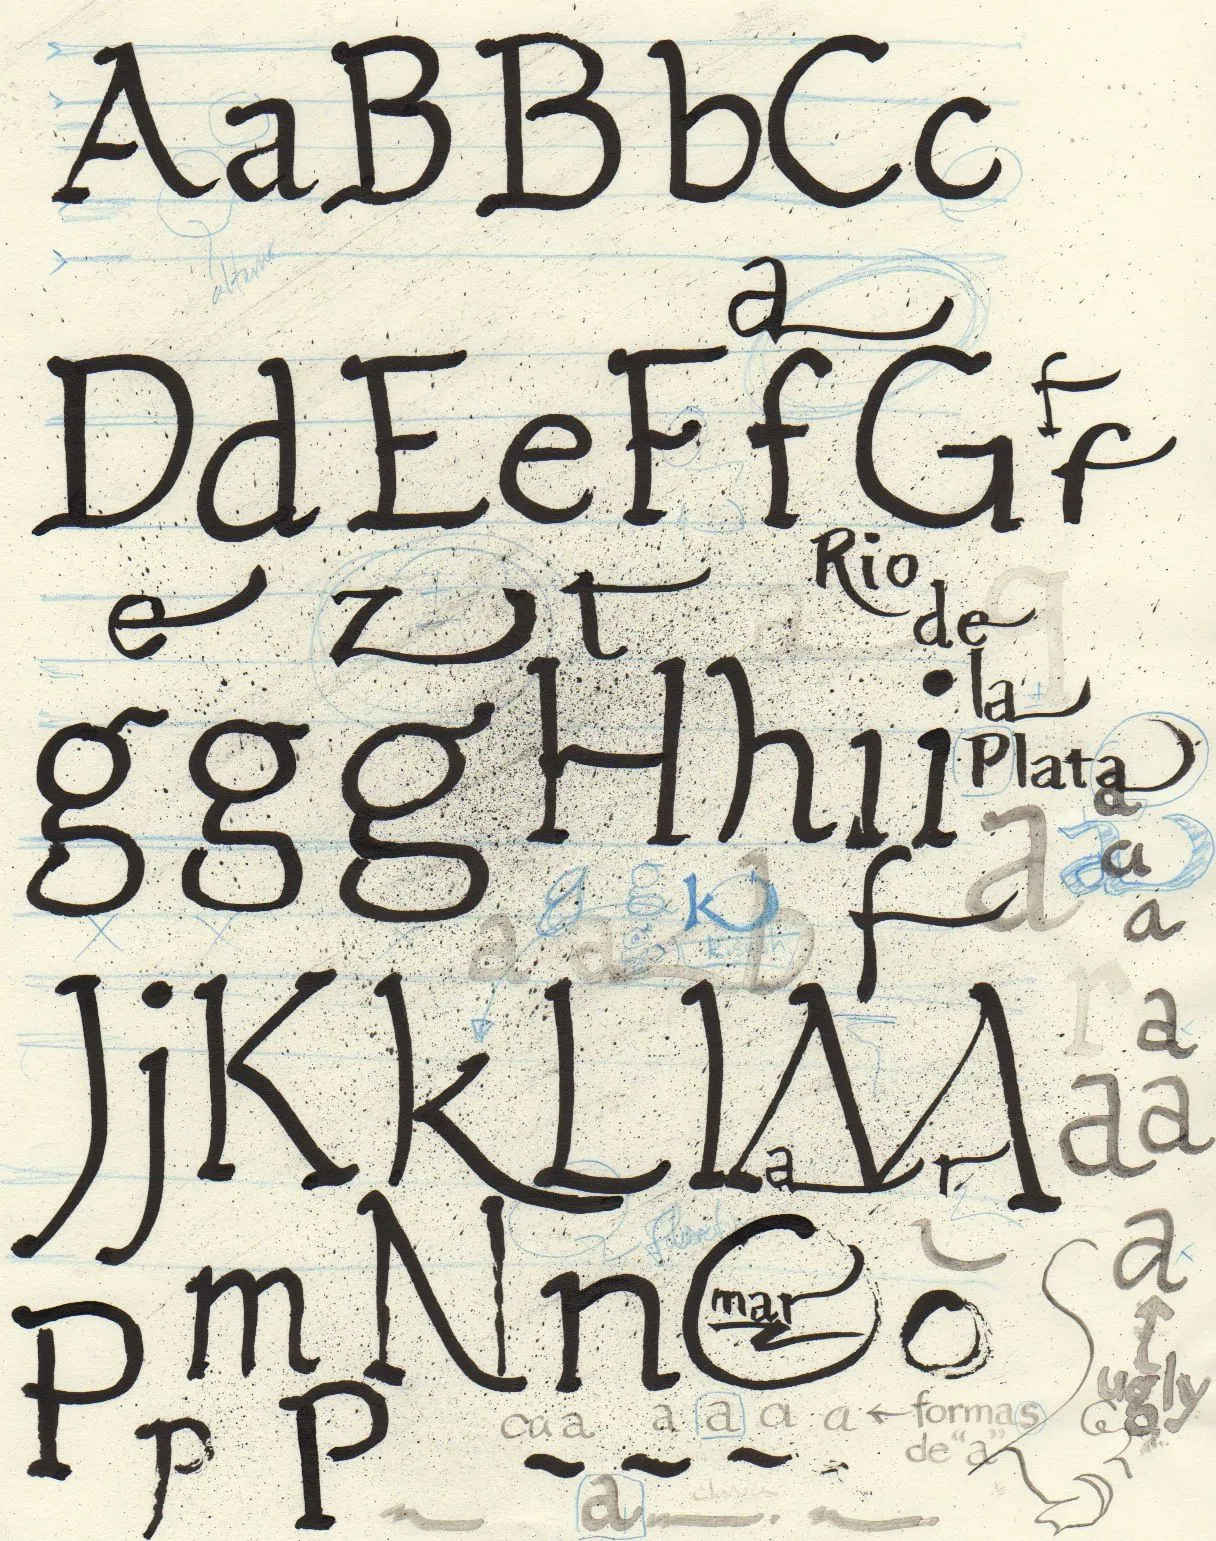 A a B B b C c
a
D d E e F f G f
f
e z t
Rio
de
la
Plata
g g g H h ı i
a a
a
g g k
a
f
a a b
r a
J j K k L l M
a r
a a
m N n O o
mar
a
P p P
ugly
a a a a a a a ← formas
de "a"
a